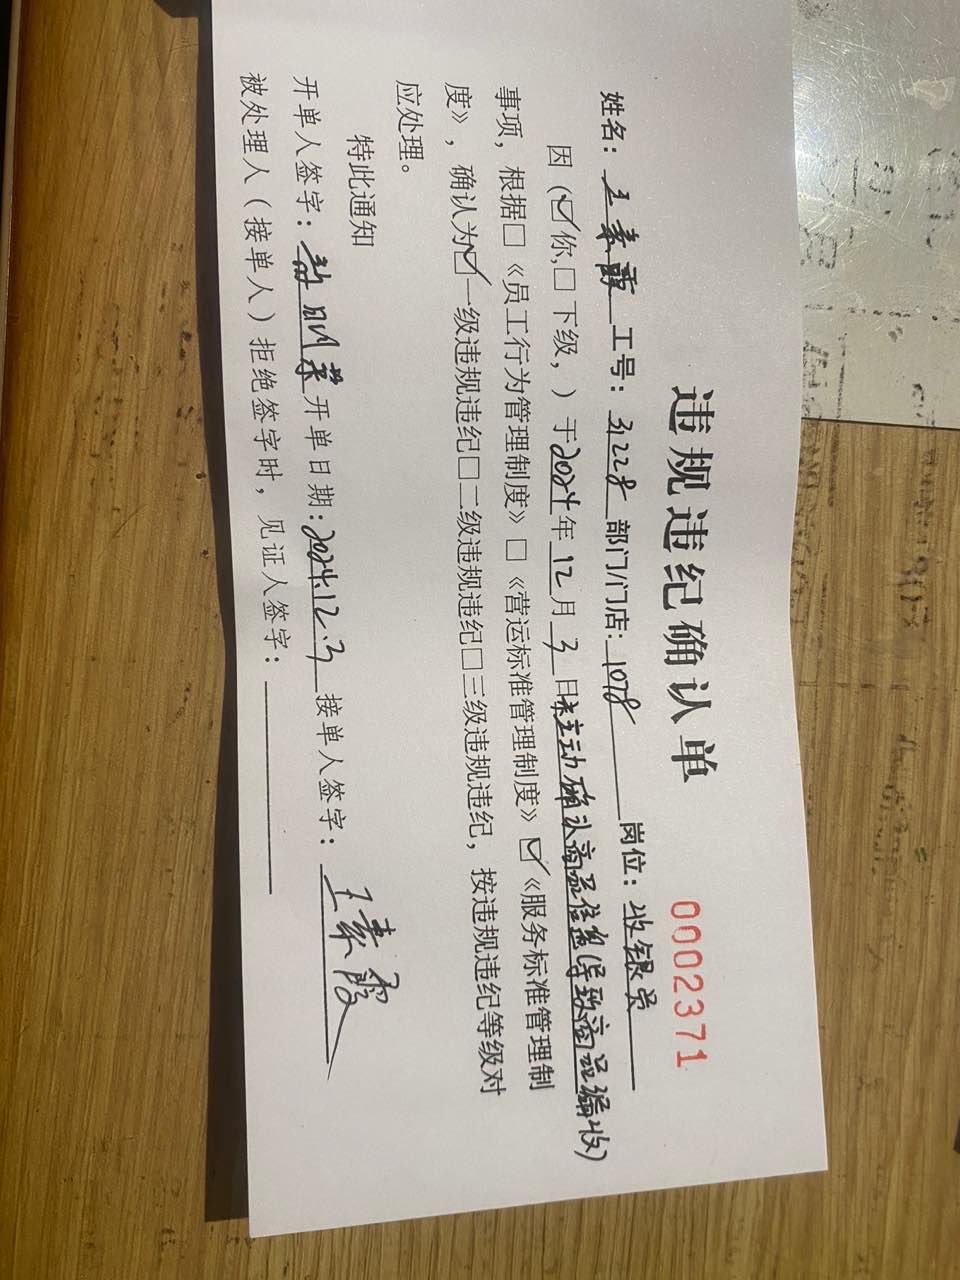 违规违纪确认单
0002371
姓名：王素霞 工号：31228 部门/门店：1078 岗位：收银员
因（☑你，□下级，）于2024年12月3日未主动确认商品信息（导致商品漏收）
事项，根据□《员工行为管理制度》□《营运标准管理制度》☑《服务标准管理制
度》，确认为☑一级违规违纪□二级违规违纪□三级违规违纪，按违规违纪等级对
应处理。
特此通知
开单人签字： 开单日期：2024.12.3 接单人签字：王素霞
被处理人（接单人）拒绝签字时，见证人签字：